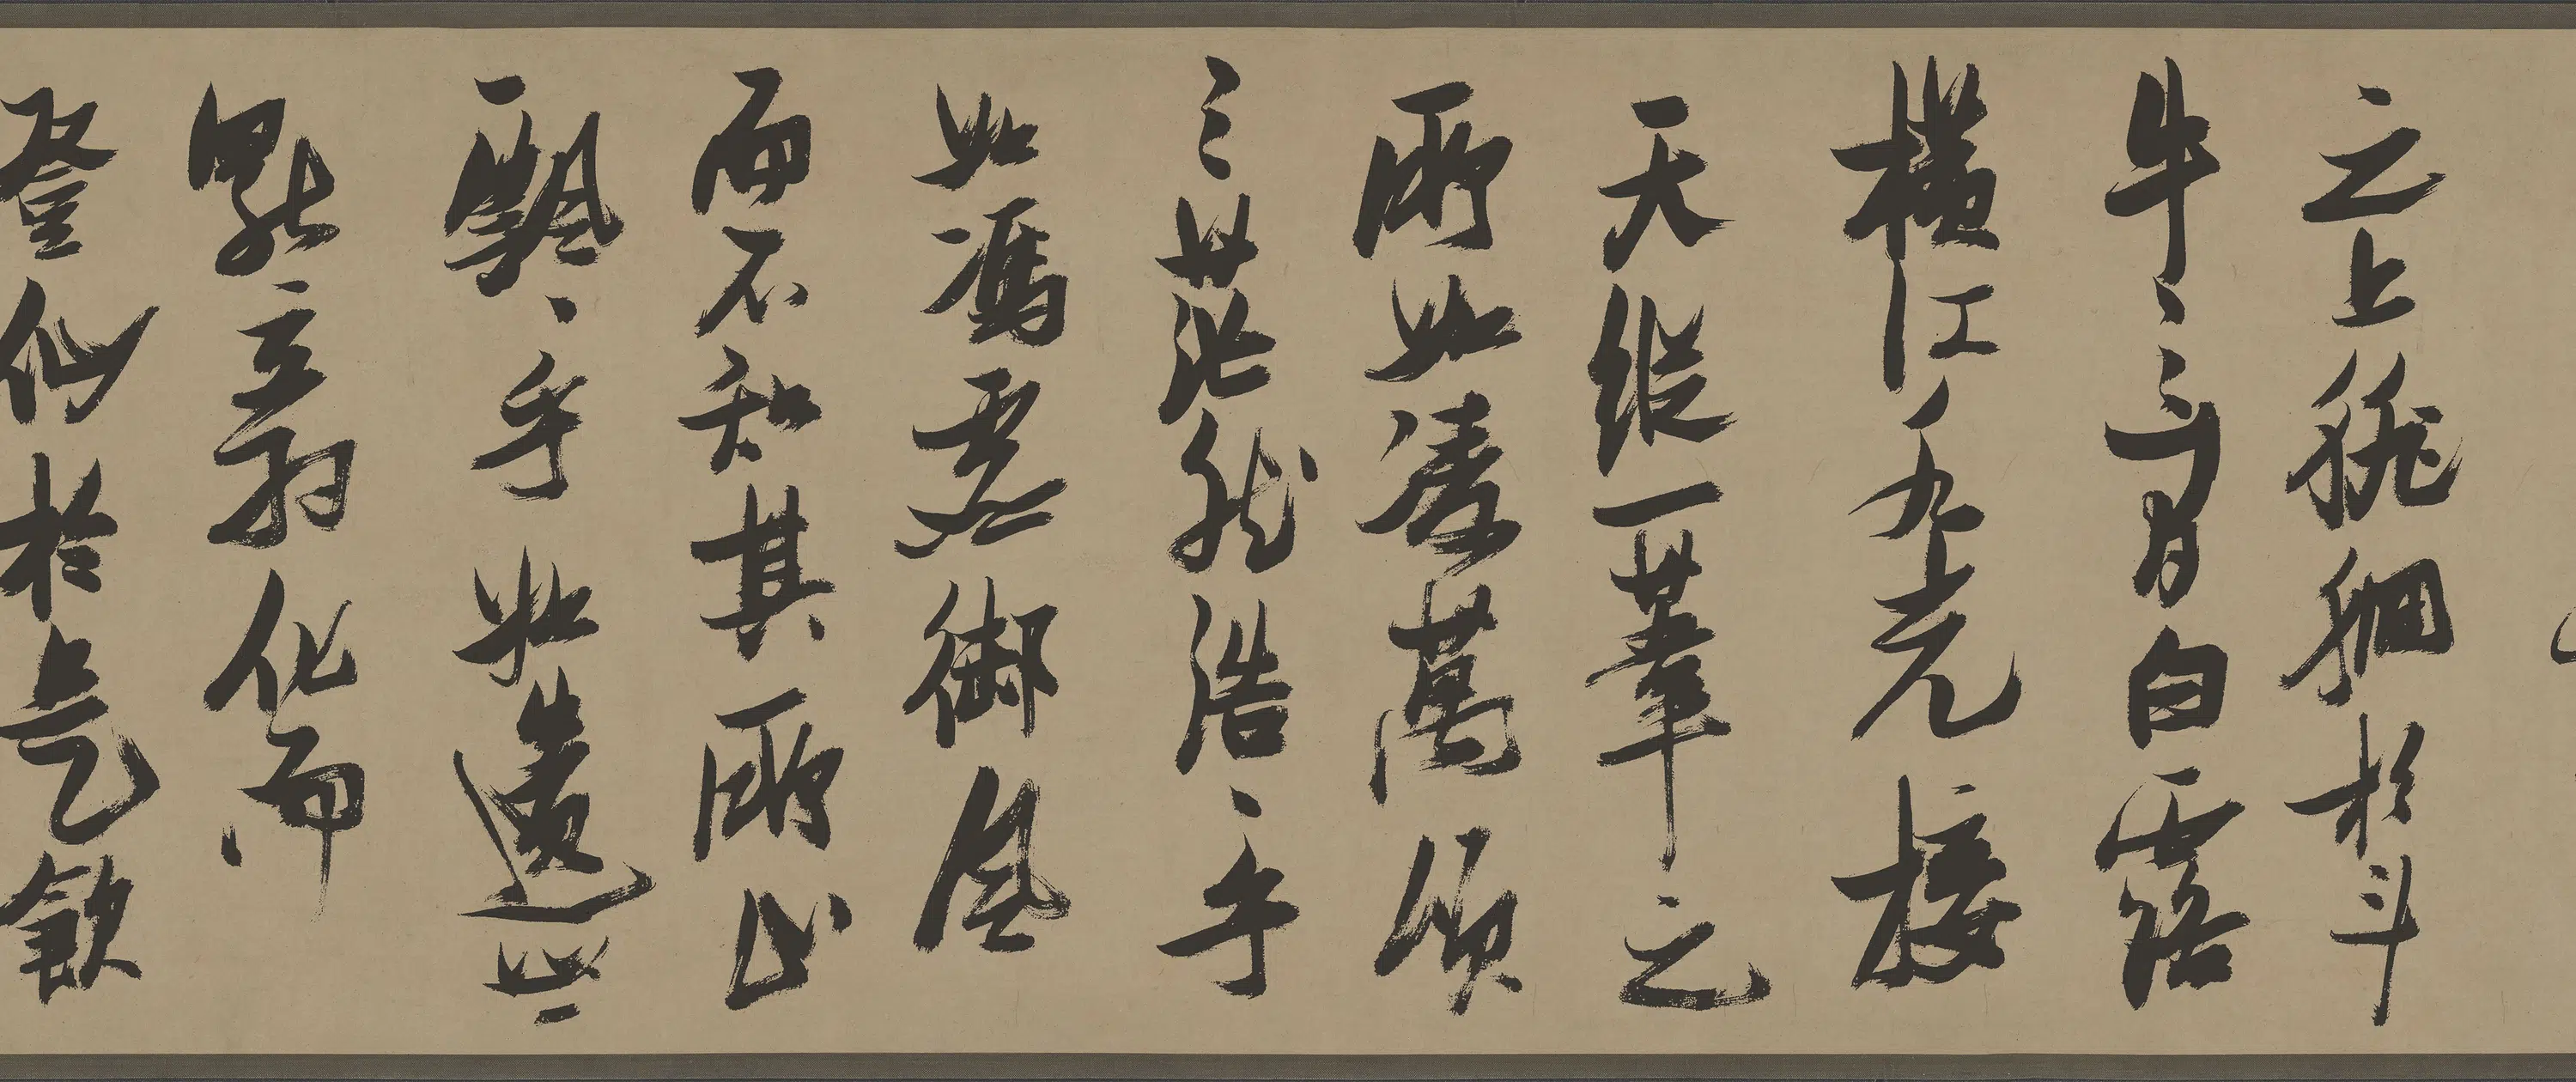 之上徘徊於斗
牛之間白露
橫江水光接
天縱一葦之
所如凌萬頃
之茫然浩〻乎
如馮虛御風
而不知其所止
飄〻乎如遺世
獨立羽化而
登仙於是飲